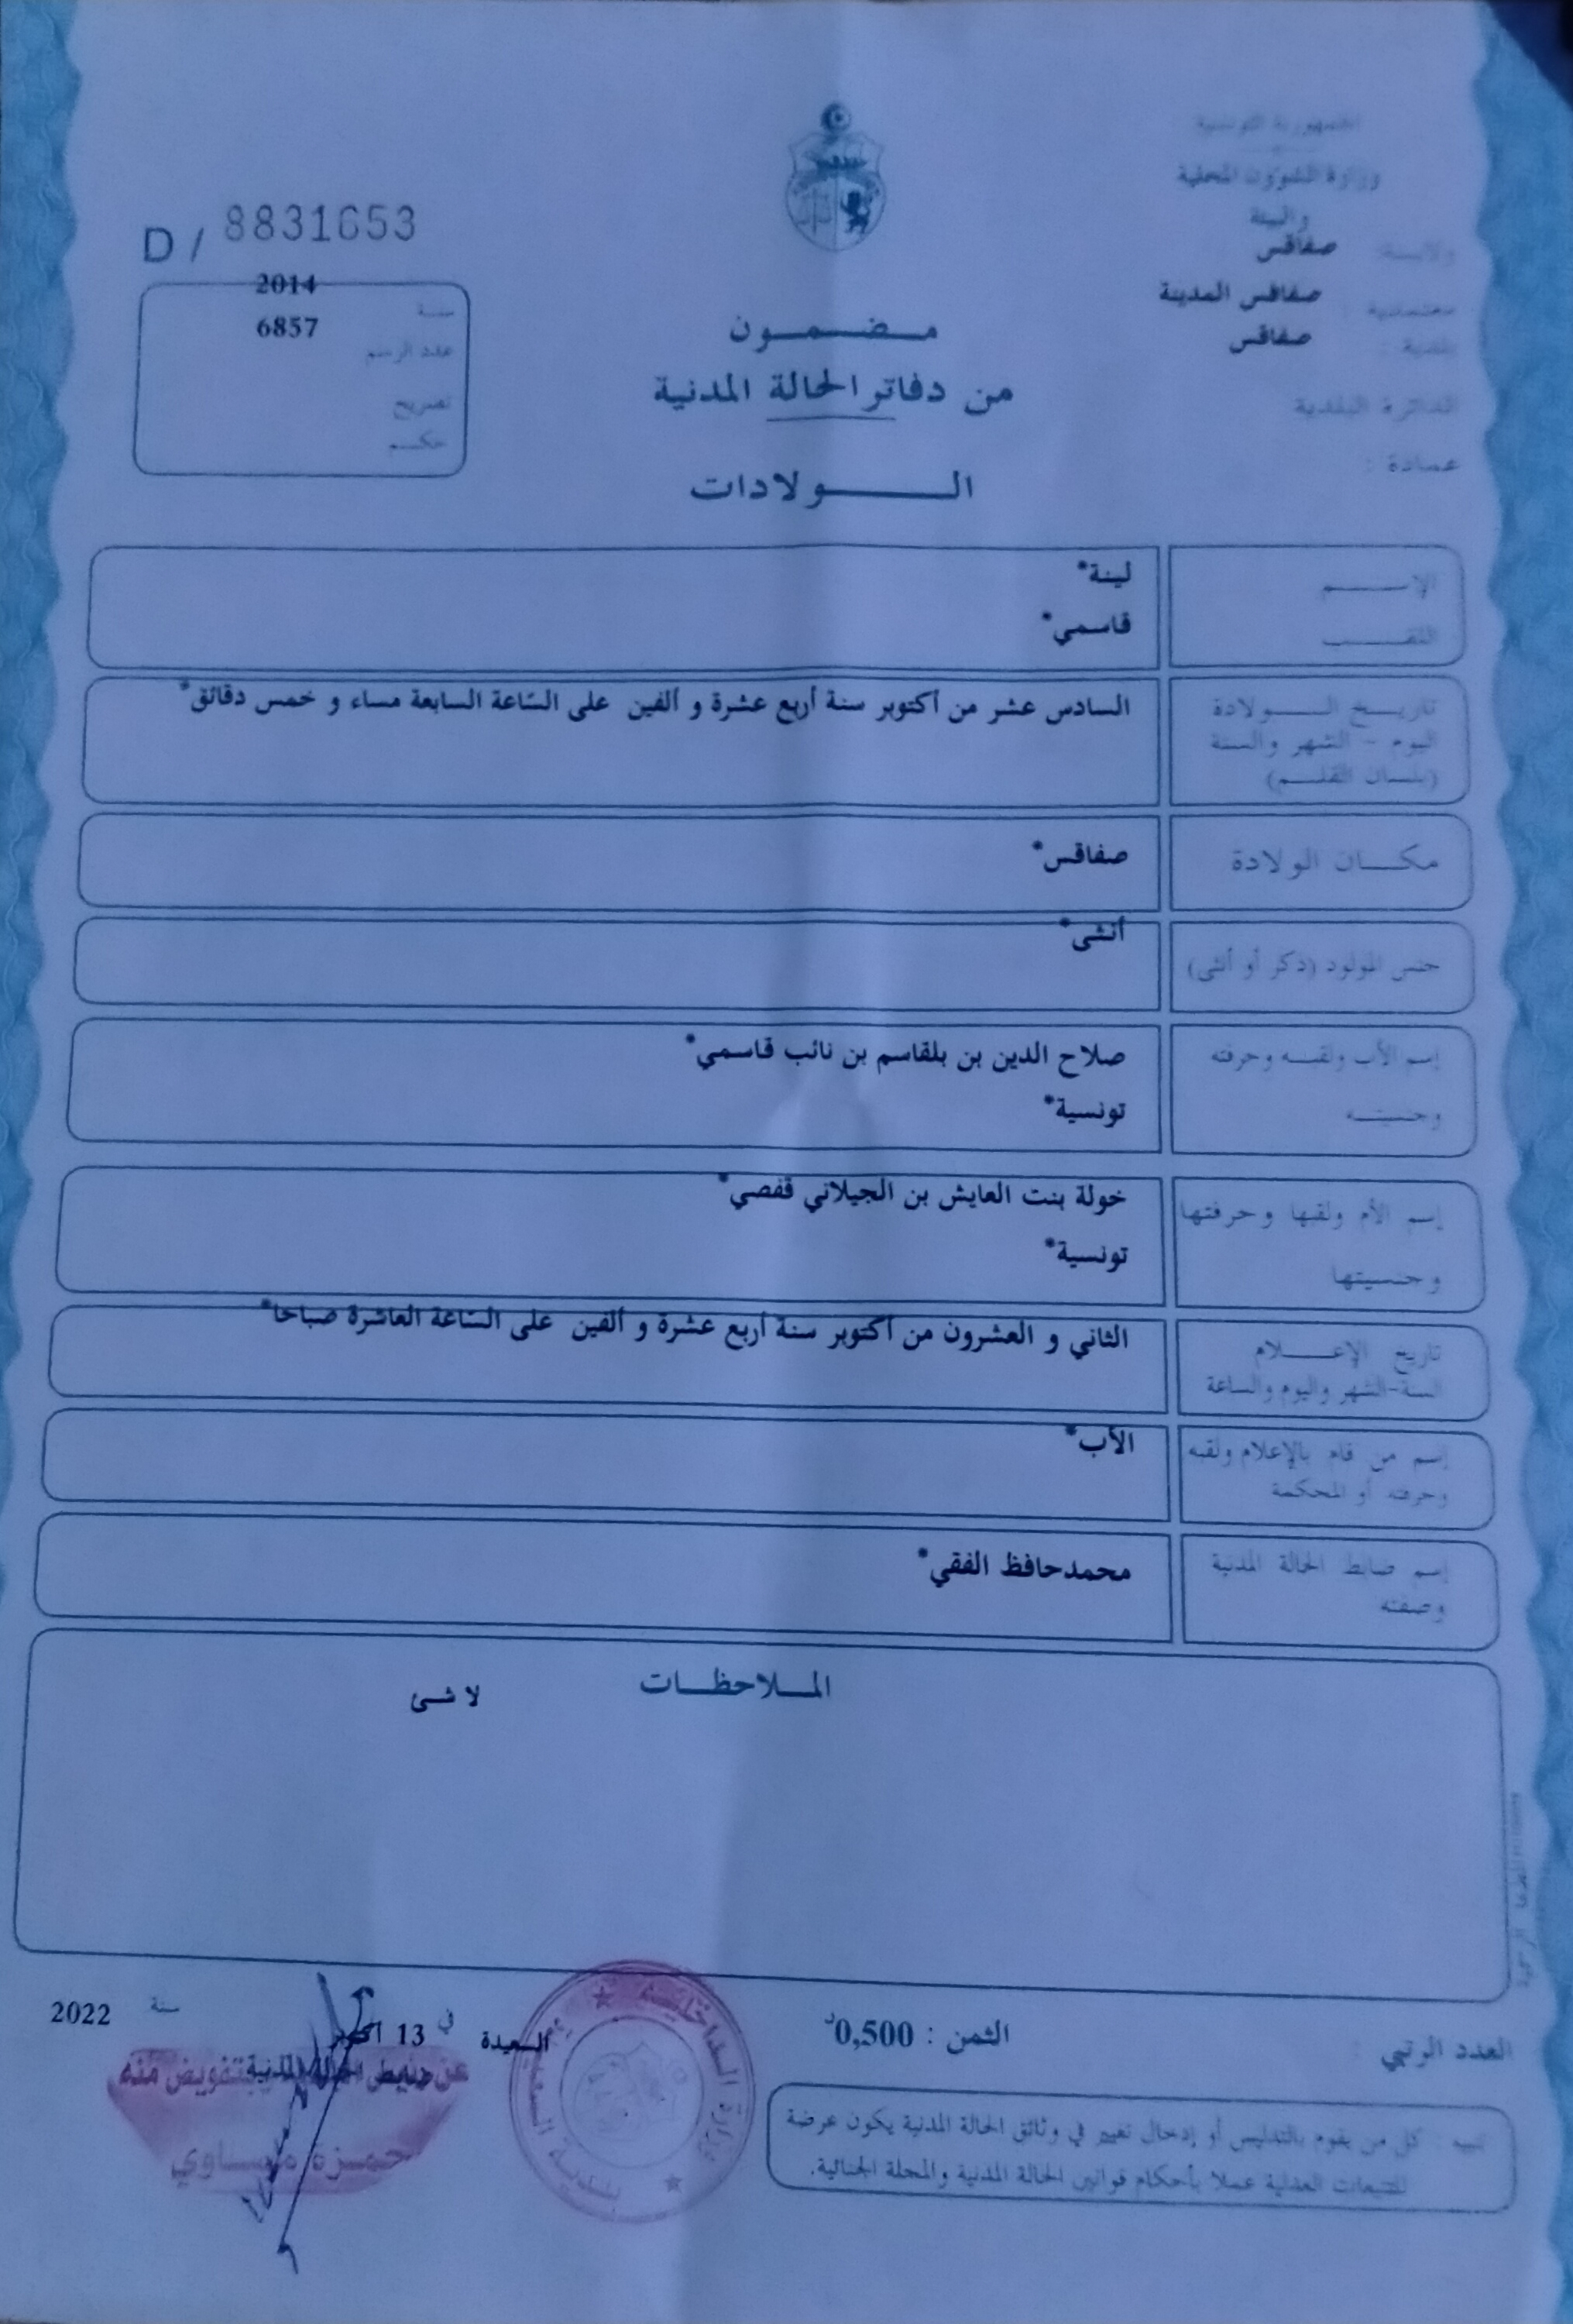 الجمهورية التونسية
وزارة الشؤون المحلية
والبيئة
ولايـــة: صفاقس
معتمدية : صفاقس المدينة
بلدية : صفاقس
الدائرة البلدية
عمادة :
D / 8831653
سنة 2014
عدد الرسم 6857
تصريح
حكم
مضمون
من دفاتر الحالة المدنية
الولادات
الإسم لينة*
اللقب قاسمي*
تاريخ الولادة السادس عشر من أكتوبر سنة أربع عشرة و ألفين على السّاعة السابعة مساء و خمس دقائق*
اليوم - الشهر والسنة
(بلسان القلم)
مكان الولادة صفاقس*
جنس المولود (ذكر أو أنثى) أنثى*
إسم الأب ولقبه وحرفته صلاح الدين بن بلقاسم بن نائب قاسمي*
وجنسيته تونسية*
إسم الأم ولقبها وحرفتها خولة بنت العايش بن الجيلاني قفصي*
وجنسيتها تونسية*
تاريخ الإعلام الثاني و العشرون من أكتوبر سنة أربع عشرة و ألفين على السّاعة العاشرة صباحا*
السنة-الشهر واليوم والساعة
إسم من قام بالإعلام ولقبه الأب*
وحرفته أو المحكمة
إسم ضابط الحالة المدنية محمدحافظ الفقي*
وصفته
الملاحظات
لا شئ
العدد الرتبي
الثمن : 0,500د
السعيدة في 13 سنة 2022
عن ضابط الحالة المدنية بتفويض منه
حمزة
وزارة الداخلية
بلدية
تنبيه : كل من يقوم بالتدليس أو إدخال تغيير في وثائق الحالة المدنية يكون عرضة
للتتبعات العدلية عملا بأحكام قوانين الحالة المدنية والمجلة الجنائية.